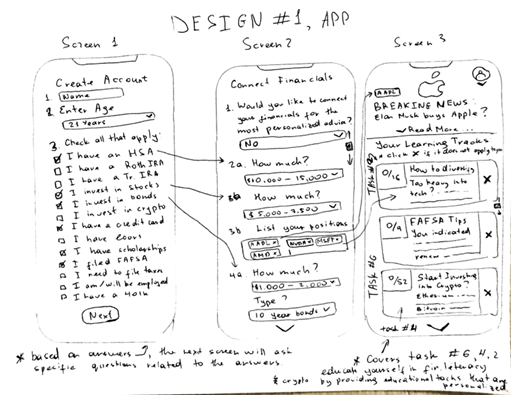 DESIGN #1, APP
Screen 1
Create Account
1. Name
2. Enter Age
21 Years
3. Check all that apply:
I have an HSA
I have a Roth IRA
I have a Tr. IRA
I invest in stocks
I invest in bonds
I invest in crypto
I have a credit card
I have
I have scholarships
I filed FAFSA
I need to file taxes
I am/will be employed
I have a 401k
Next
Screen 2
Connect Financials
1. Would you like to connect
your financials for the
most personalized advice?
No
2a. How much?
$10,000 - 15,000
How much?
$5,000 - 7,500
3b List your positions
AAPL x NVDA x MSFT x
AMD x
4a. How much?
$1,000 - 2,000
Type?
10 year bonds
Screen 3
AAPL
BREAKING NEWS:
Elan Musk buys Apple?
Read More ...
Your Learning Tracks
* click x if it doesn't apply
TASK #6
0/16
How to diversify
Too heavy into
tech?
x
0/9
FAFSA Tips
You indicated
x
TASK #6
0/52
Start Investing
into Crypto?
Ethereum
Bitcoin
x
task #4
* based on answers, the next screen will ask
specific questions related to the answers.
* Covers task #6, 4.2
educate yourself in fin. literacy
* crypto by providing educational tracks that are
personalized